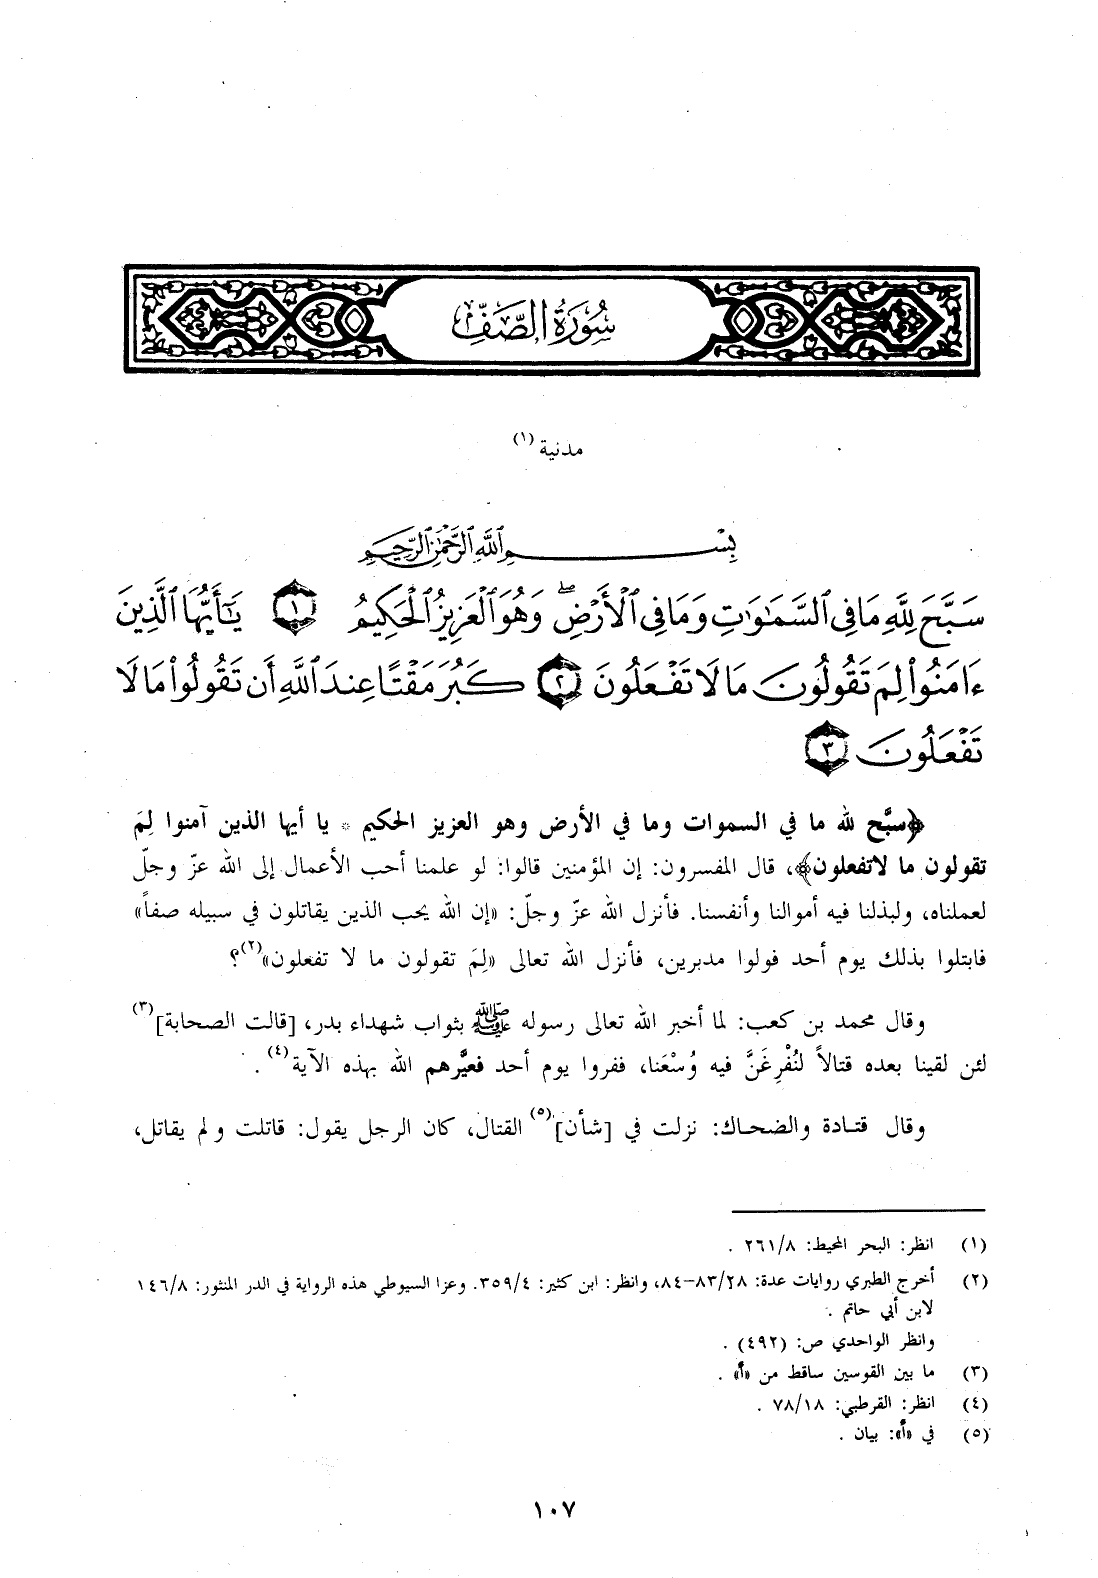 سُورَةُ الصَّفِّ
مدنية (١)
بِسْمِ ٱللَّهِ ٱلرَّحْمَٰنِ ٱلرَّحِيمِ
سَبَّحَ لِلَّهِ مَا فِي ٱلسَّمَٰوَٰتِ وَمَا فِي ٱلْأَرْضِ ۖ وَهُوَ ٱلْعَزِيزُ ٱلْحَكِيمُ ١ يَٰٓأَيُّهَا ٱلَّذِينَ
ءَامَنُوا۟ لِمَ تَقُولُونَ مَا لَا تَفْعَلُونَ ٢ كَبُرَ مَقْتًا عِندَ ٱللَّهِ أَن تَقُولُوا۟ مَا لَا
تَفْعَلُونَ ٣
﴿سبَّح لله ما في السموات وما في الأرض وهو العزيز الحكيم * يا أيها الذين آمنوا لِمَ
تقولون ما لاتفعلون﴾، قال المفسرون: إن المؤمنين قالوا: لو علمنا أحب الأعمال إلى الله عزّ وجلّ
لعملناه، ولبذلنا فيه أموالنا وأنفسنا. فأنزل الله عزّ وجلّ: «إن الله يحب الذين يقاتلون في سبيله صفاً»
فابتلوا بذلك يوم أحد فولوا مدبرين، فأنزل الله تعالى «لِمَ تقولون ما لا تفعلون»(٢)؟
وقال محمد بن كعب: لما أخبر الله تعالى رسوله ﷺ بثواب شهداء بدر، [قالت الصحابة](٣)
لئن لقينا بعده قتالاً لنُفْرِغَنَّ فيه وُسْعَنا، ففروا يوم أحد فعيَّرهم الله بهذه الآية(٤) .
وقال قتادة والضحاك: نزلت في [شأن](٥) القتال، كان الرجل يقول: قاتلت ولم يقاتل،
(١) انظر: البحر المحيط: ٢٦١/٨ .
(٢) أخرج الطبري روايات عدة: ٨٣/٢٨-٨٤، وانظر: ابن كثير: ٣٥٩/٤. وعزا السيوطي هذه الرواية في الدر المنثور: ١٤٦/٨
لابن أبي حاتم .
وانظر الواحدي ص: (٤٩٢) .
(٣) ما بين القوسين ساقط من «أ» .
(٤) انظر: القرطبي: ٧٨/١٨ .
(٥) في «أ»: بيان .
١٠٧